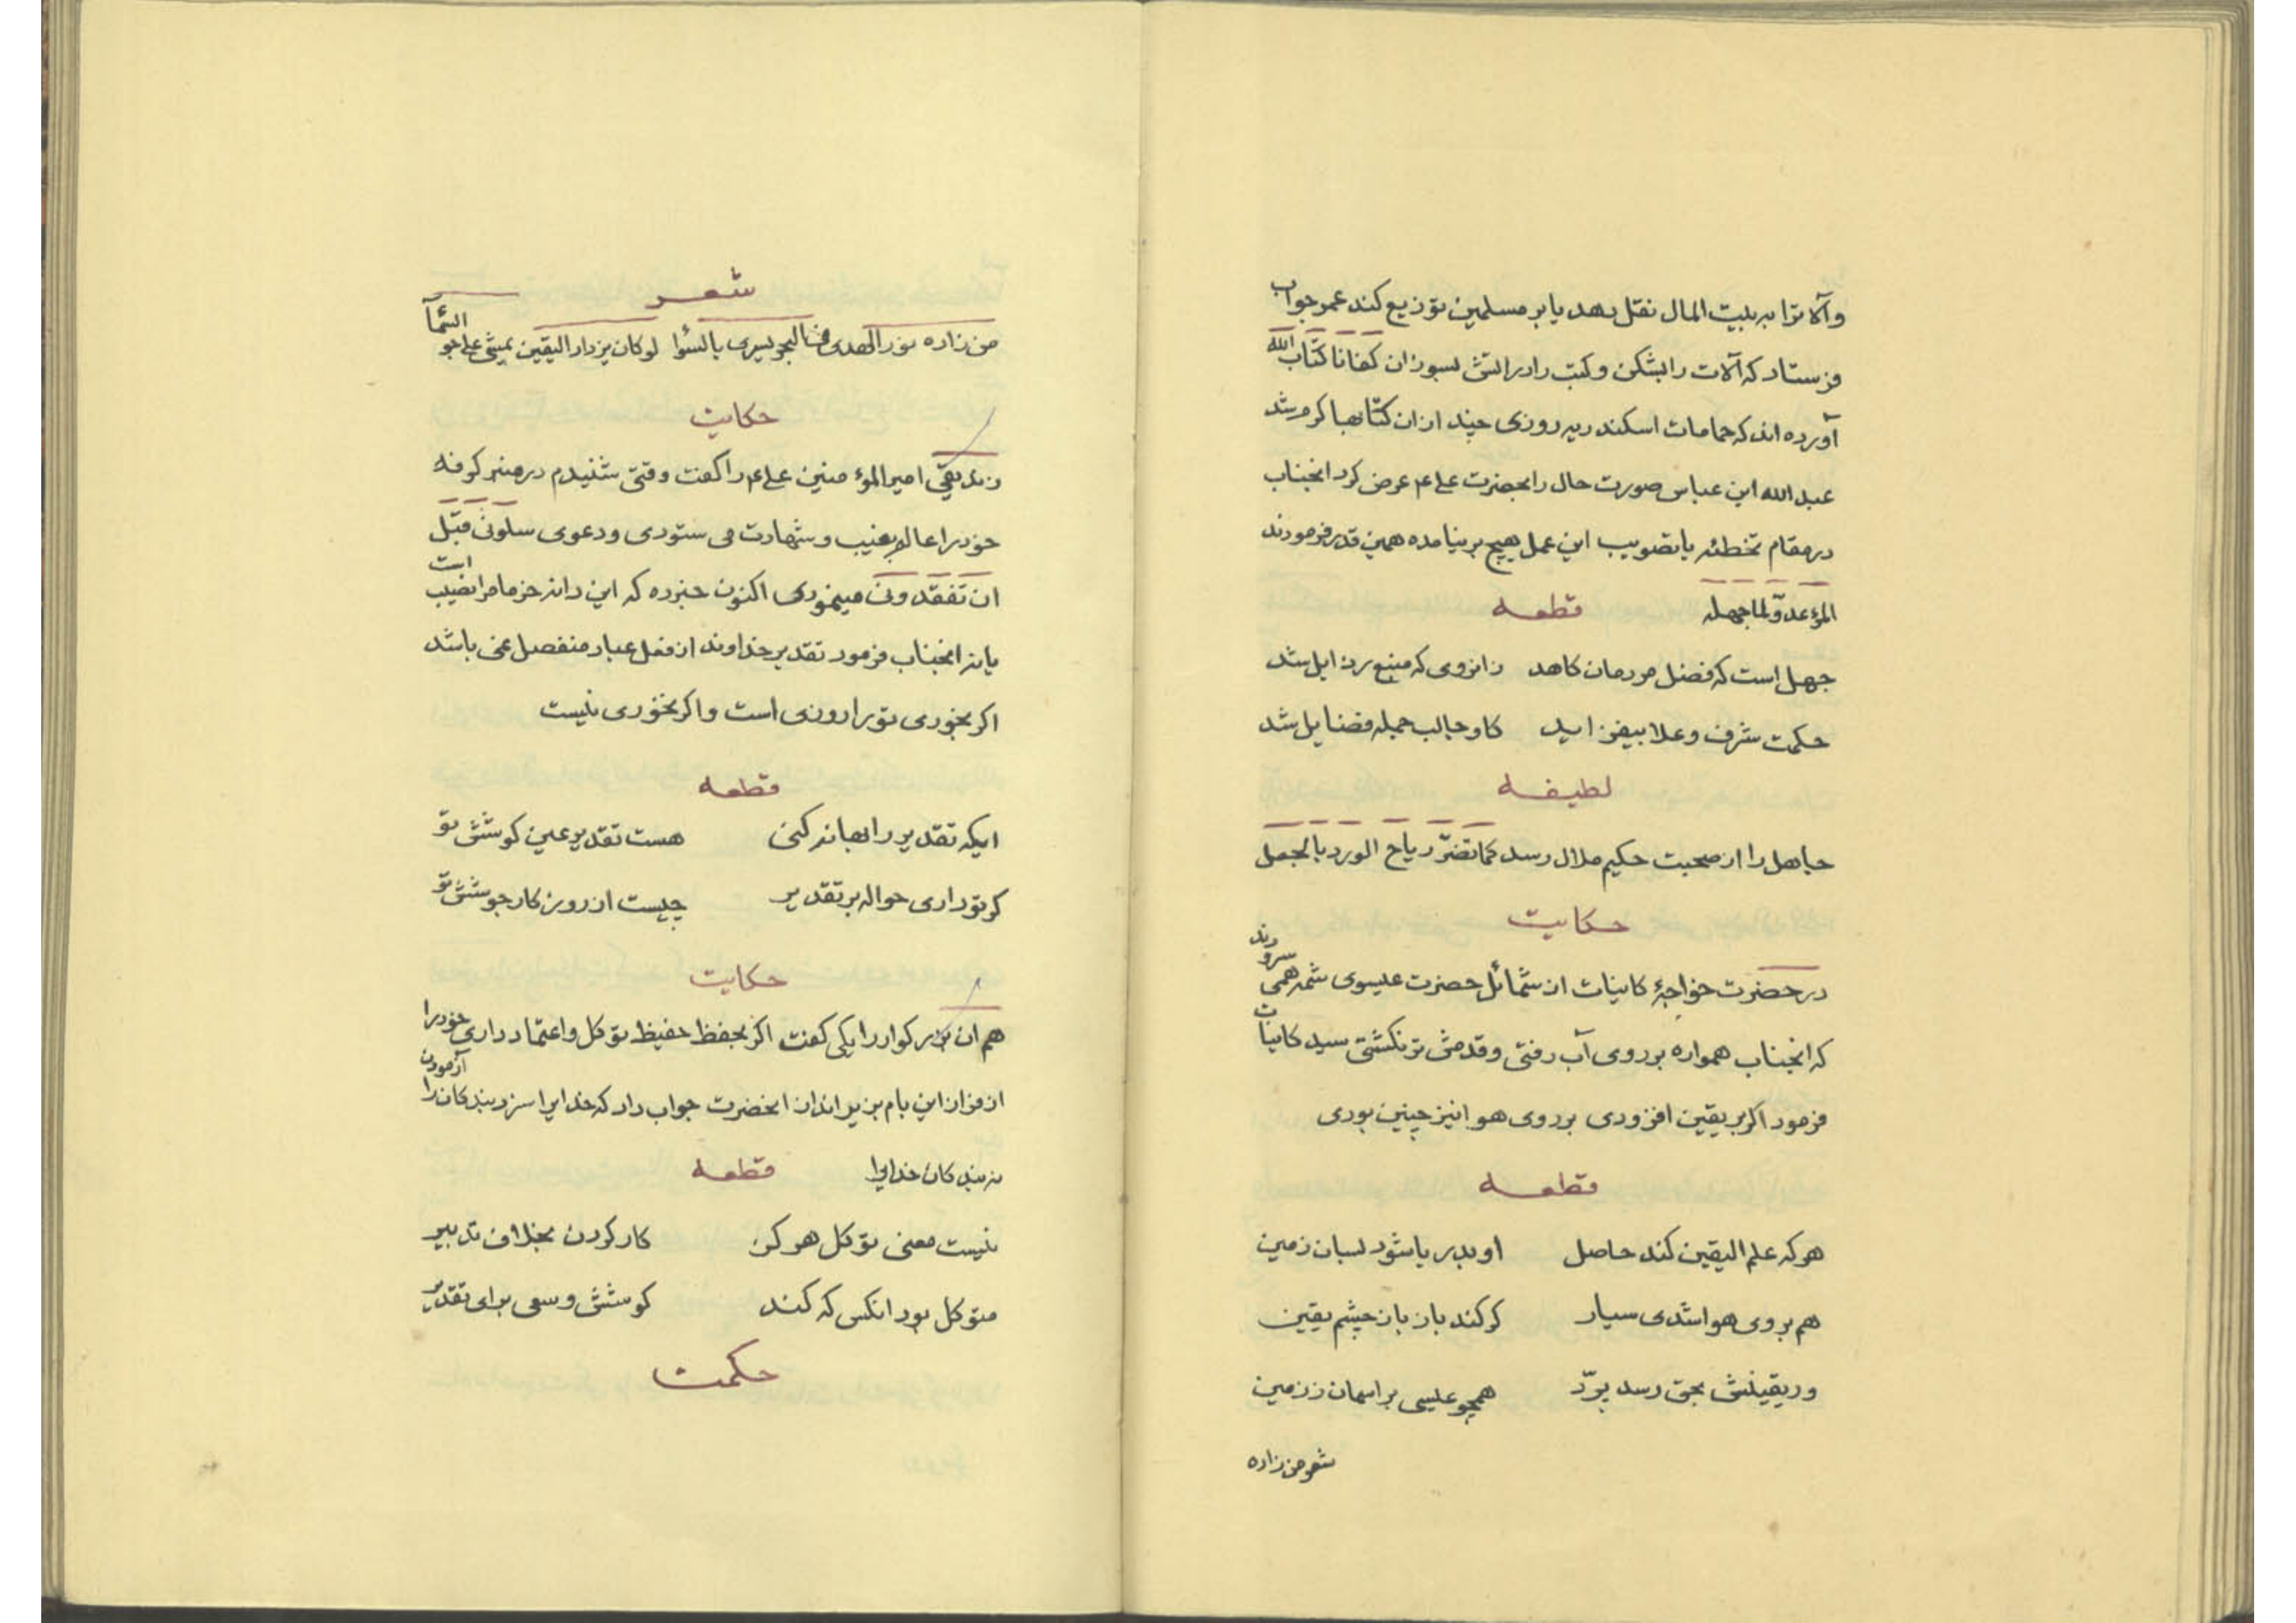 وآلاترا به بیت المال نقل بهد یا بر مسلمین توزیع کند عمر جواب
فرستاد که آلات را بشکن و کتب را در اتش بسوزان کفانا کتاب الله
آورده اند که حمامات اسکندریه روزی چند ازان کتابها کرم شد
عبد الله ابن عباس صورت حال را بحضرت علی ع عرض کرد انجناب
در مقام تخطئه یا تصویب این عمل هیچ بر نیامده همین قدر فرمودند
المؤ عدو لما جهله قطعه
جهل است که فضل مردمان کاهد زانروی که منبع رذایل شد
حکمت شرف و علا بیفزاید کاو جالب جمله فضایل شد
لطیفه
جاهل را از صحبت حکیم ملال رسد کما تضرّ ریاح الورد بالجعل
حکایت
در حضرت خواجهٔ کاینات از شمائل حضرت عیسوی شمه همی سرودند
که انجناب همواره بر روی آب رفتی و قدمش تر نکشتی سید کاینات
فرمود اکر بر یقین افزودی بر روی هوا نیز چنین بودی
قطعه
هر که علم الیقین کند حاصل او بدریا شود بسان زمین
هم بروی هوا شدی سیار کر کند باز باز چشم یقین
ور یقینش بحق رسد بپرّد همچو عیسی بر اسمان ز زمین
شعر من زاده
شعر
من زاده نور الهدی فی البحر یسری بالسوا لو کان یزداد الیقین یمشی علی جو السّمآ
حکایت
زندیقی امیر المؤمنین علی ع را کفت وقتی شنیدم در منبر کوفه
خود را عالم بغیب و شهادت می ستودی و دعوی سلونی قبّل
ان تفقدونی مینمودی اکنون خبر ده که این دانه خرما مرا نصیب است
یا نه انجناب فرمود تقدیر خداوند از فعل عباد منفصل نمی باشد
اکر بخوری تو را روزی است و اکر نخوری نیست
قطعه
ایکه تقدیر را بهانه کنی هست تقدیر عین کوشش تو
کر تو داری حواله بر تقدیر چیست از روز کار جوشش تو
حکایت
هم ان بزرکوار را یکی کفت اکر بحفظ حفیظ توکل و اعتماد داری خود را
از فراز این بام بزیر انداز انحضرت جواب داد که خدایرا سزد بندکان را آزمودن
نه بندکان خدایرا قطعه
نیست معنی توکل هرکز کار کردن بخلاف تدبیر
متوکل بود انکس که کند کوشش و سعی برای تقدیر
حکمت